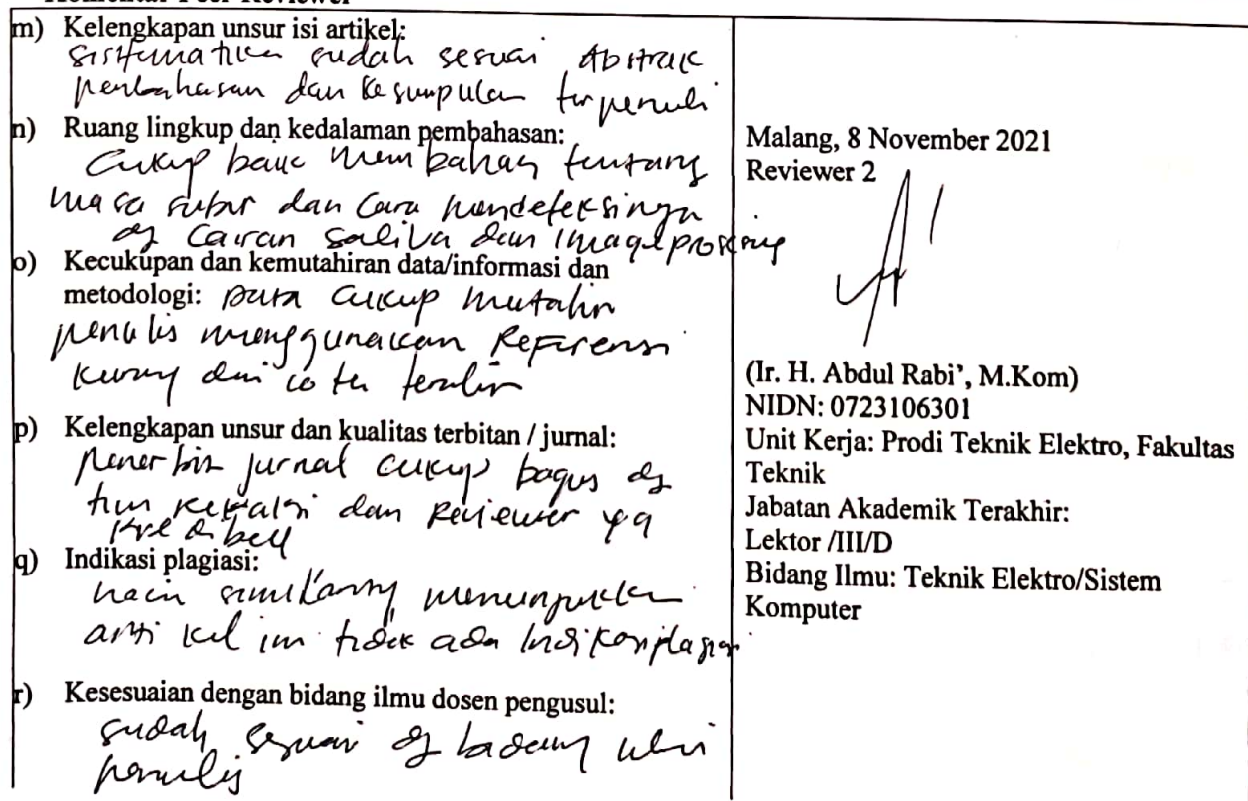 m) Kelengkapan unsur isi artikel:
sistematika sudah sesuai Abstrak
pembahasan dan kesimpulan terpenuhi
n) Ruang lingkup dan kedalaman pembahasan:
Cukup baik membahas tentang
masa subur dan cara mendeteksinya
dg Cairan saliva dan image prosesing
o) Kecukupan dan kemutahiran data/informasi dan
metodologi: Data cukup mutahir
penulis menggunakan Referensi
kurang dari 10 th terahir
p) Kelengkapan unsur dan kualitas terbitan / jurnal:
penerbit jurnal cukup bagus dg
dan Reviewer yg
q) Indikasi plagiasi:
hasil similarity menunjukkan
artikel ini tidak ada Indikasi plagiasi
r) Kesesuaian dengan bidang ilmu dosen pengusul:
sudah sesuai dg
penulis
Malang, 8 November 2021
Reviewer 2
(Ir. H. Abdul Rabi’, M.Kom)
NIDN: 0723106301
Unit Kerja: Prodi Teknik Elektro, Fakultas
Teknik
Jabatan Akademik Terakhir:
Lektor /III/D
Bidang Ilmu: Teknik Elektro/Sistem
Komputer